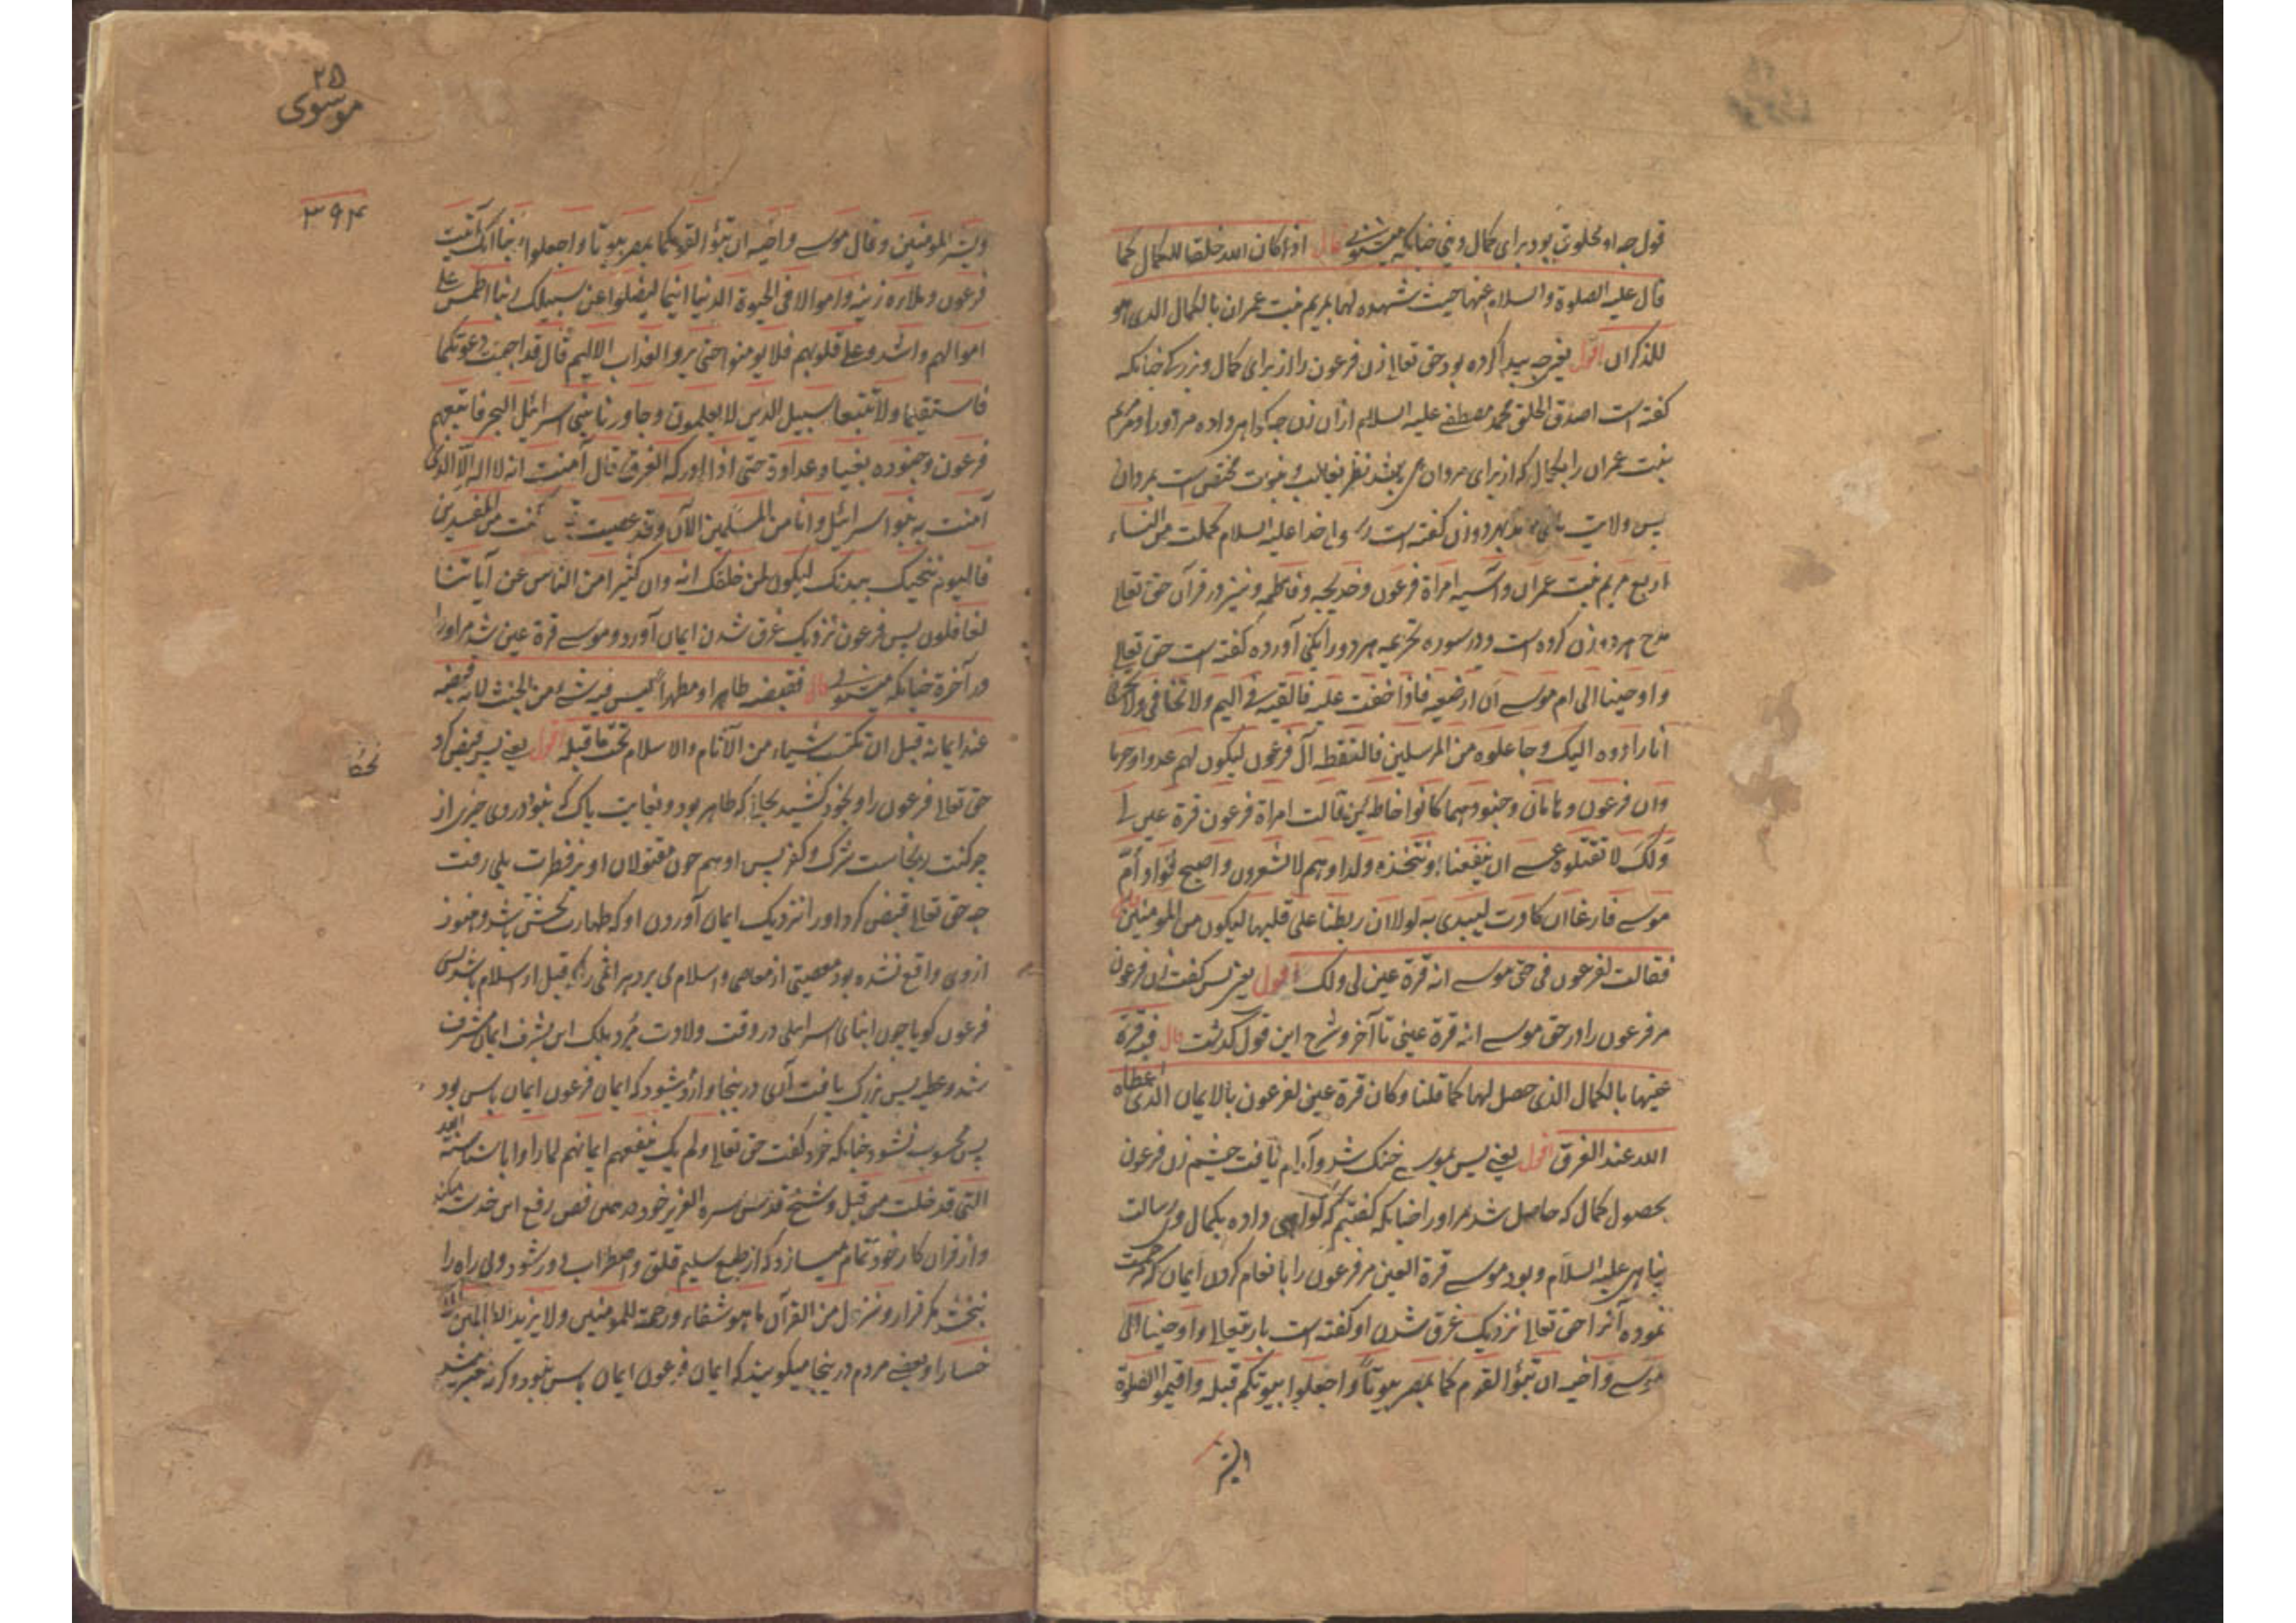 قول چه او مخلوق بود برای کمال دینی چنانکه میشنوی قال اذ کان الله خلقها للکمال کما
قال علیه الصلوة والسلام عنها حیث شهد لها بمریم بنت عمران بالکمال الذی هو
للذکران اقول یعنی چه پیدا کرده بود حق تعالی زن فرعون را از برای کمال و بزرگی چنانکه
گفته است اصدق الخلق محمد مصطفی علیه السلام از آن زن چه گواهی داده مر او را و مریم
بنت عمران را بکمال که از برای مردان می باشد نظر بغالب و نبوت مختص است بمردان
پس ولایت هر دو زن گفته است رسول خدا علیه السلام کملت من النساء
اربع مریم بنت عمران و آسیه امراة فرعون و خدیجه و فاطمه و نیز در قرآن حق تعالی
مدح هر دو زن کرده است و در سوره تحریم هر دو را یکی آورده گفته است حق تعالی
واوحینا الی ام موسی ان ارضعیه فاذا خفت علیه فالقیه فی الیم ولا تخافی ولا تحزنی
انا رادوه الیک وجاعلوه من المرسلین فالتقطه آل فرعون لیکون لهم عدوا وحزنا
وان فرعون وهامان وجنودهما کانوا خاطئین وقالت امراة فرعون قرة عین لی
ولک لا تقتلوه عسی ان ینفعنا او نتخذه ولدا وهم لا یشعرون واصبح فؤاد أمّ
موسی فارغا ان کادت لتبدی به لولا ان ربطنا علی قلبها لیکون من المومنین
فقالت لفرعون فی حق موسی انه قرة عین لی ولک اقول یعنی پس گفت زن فرعون
مر فرعون را در حق موسی انه قرة عینی تا آخر و شرح این قول گذشت قال فبه قرة
عینها بالکمال الذی حصل لها کما قلنا وکان قرة عین لفرعون بالایمان الذی اعطاه
الله عند الغرق اقول یعنی پس بموسی خنک شد و آرام یافت چشم زن فرعون
بحصول کمال که حاصل شد مر او را چنانکه گفتیم که گواهی داده بکمال وی رسالت
پناهی علیه السلام و بود موسی قرة العین مر فرعون را بانعام کردن ایمان که مرحمت
نموده آنرا حق تعالی نزدیک غرق شدن او گفته است باریتعالی واوحینا الی
موسی واخیه ان تبوّءا لقومکما بمصر بیوتا واجعلوا بیوتکم قبلة واقیموا الصلوة
وبشر
۲۵
موسوی
۳۹۴
وبشر المومنین وقال موسی واخیه ان تبوءا لقومکما بمصر بیوتا واجعلوا ربنا انک آتیت
فرعون وملاءه زینة واموالا فی الحیوة الدنیا ربنا لیضلوا عن سبیلک ربنا اطمس علی
اموالهم واشدد علی قلوبهم فلا یومنوا حتی یروا العذاب الالیم قال قد اجیبت دعوتکما
فاستقیما ولا تتبعا سبیل الذین لا یعلمون وجاوزنا ببنی اسرائیل البحر فاتبعهم
فرعون وجنوده بغیا وعداوة حتی اذا ادرکه الغرق قال آمنت انه لا اله الا الذی
آمنت به بنوا اسرائیل وانا من المسلمین الآن وقد عصیت کنت من المفسدین
فالیوم ننجیک ببدنک لیکون لمن خلفک آیة وان کثیرا من الناس عن آیاتنا
لغافلون پس فرعون نزدیک غرق شدن ایمان آورد و موسی قرة عین شد مر او را
در آخرة چنانکه میشنوی قال فقبضه طاهرا ومطهرا لیس فیه شیء من الخبث لانه قبضه
عند ایمانه قبل ان یکتسب شیاء من الآثام والاسلام یجبّ ما قبله اقول یعنی پس قبض کرد
حق تعالی فرعون را و بخود کشید بجائیکه طاهر بود و بغایت پاک که نبود در وی چیزی از
چرکنت و نجاست شرک و کفر پس او هم چون مقتولان او بر فطرت بلی رفت
چه حق تعالی قبض کرد او را نزدیک ایمان آوردن او که طهارت بخش باشد و هنوز
از وی واقع نشده بود معصیتی از معاصی و اسلام می برد هر آنچه را که قبل از اسلام باشد پس
فرعون گویا چون ابنای اسرائیلی در وقت ولادت مُرد بلکه این بشرف ایمان مشرف
شد و عطیه بس بزرگ یافت آری درینجا وارد میشود که ایمان فرعون ایمان یاس بود
پس محسوب نشود چنانکه خود گفت حق تعالی ولم یک ینفعهم ایمانهم لما راوا باسنا سنة الله
التی قد خلت من قبل و شیخ قدس سره العزیز خود در همین فص رفع این خدشه میکند
و از قرآن کار خود تمام میسازد که از طبع سلیم قلق و اضطراب دور شود ولی راه را
نبخشد مگر قرار وننزل من القرآن ما هو شفاء ورحمة للمومنین ولا یزید الظالمین الا
خسارا و بعضی مردم درینجا میگویند که ایمان فرعون ایمان یاس نبود